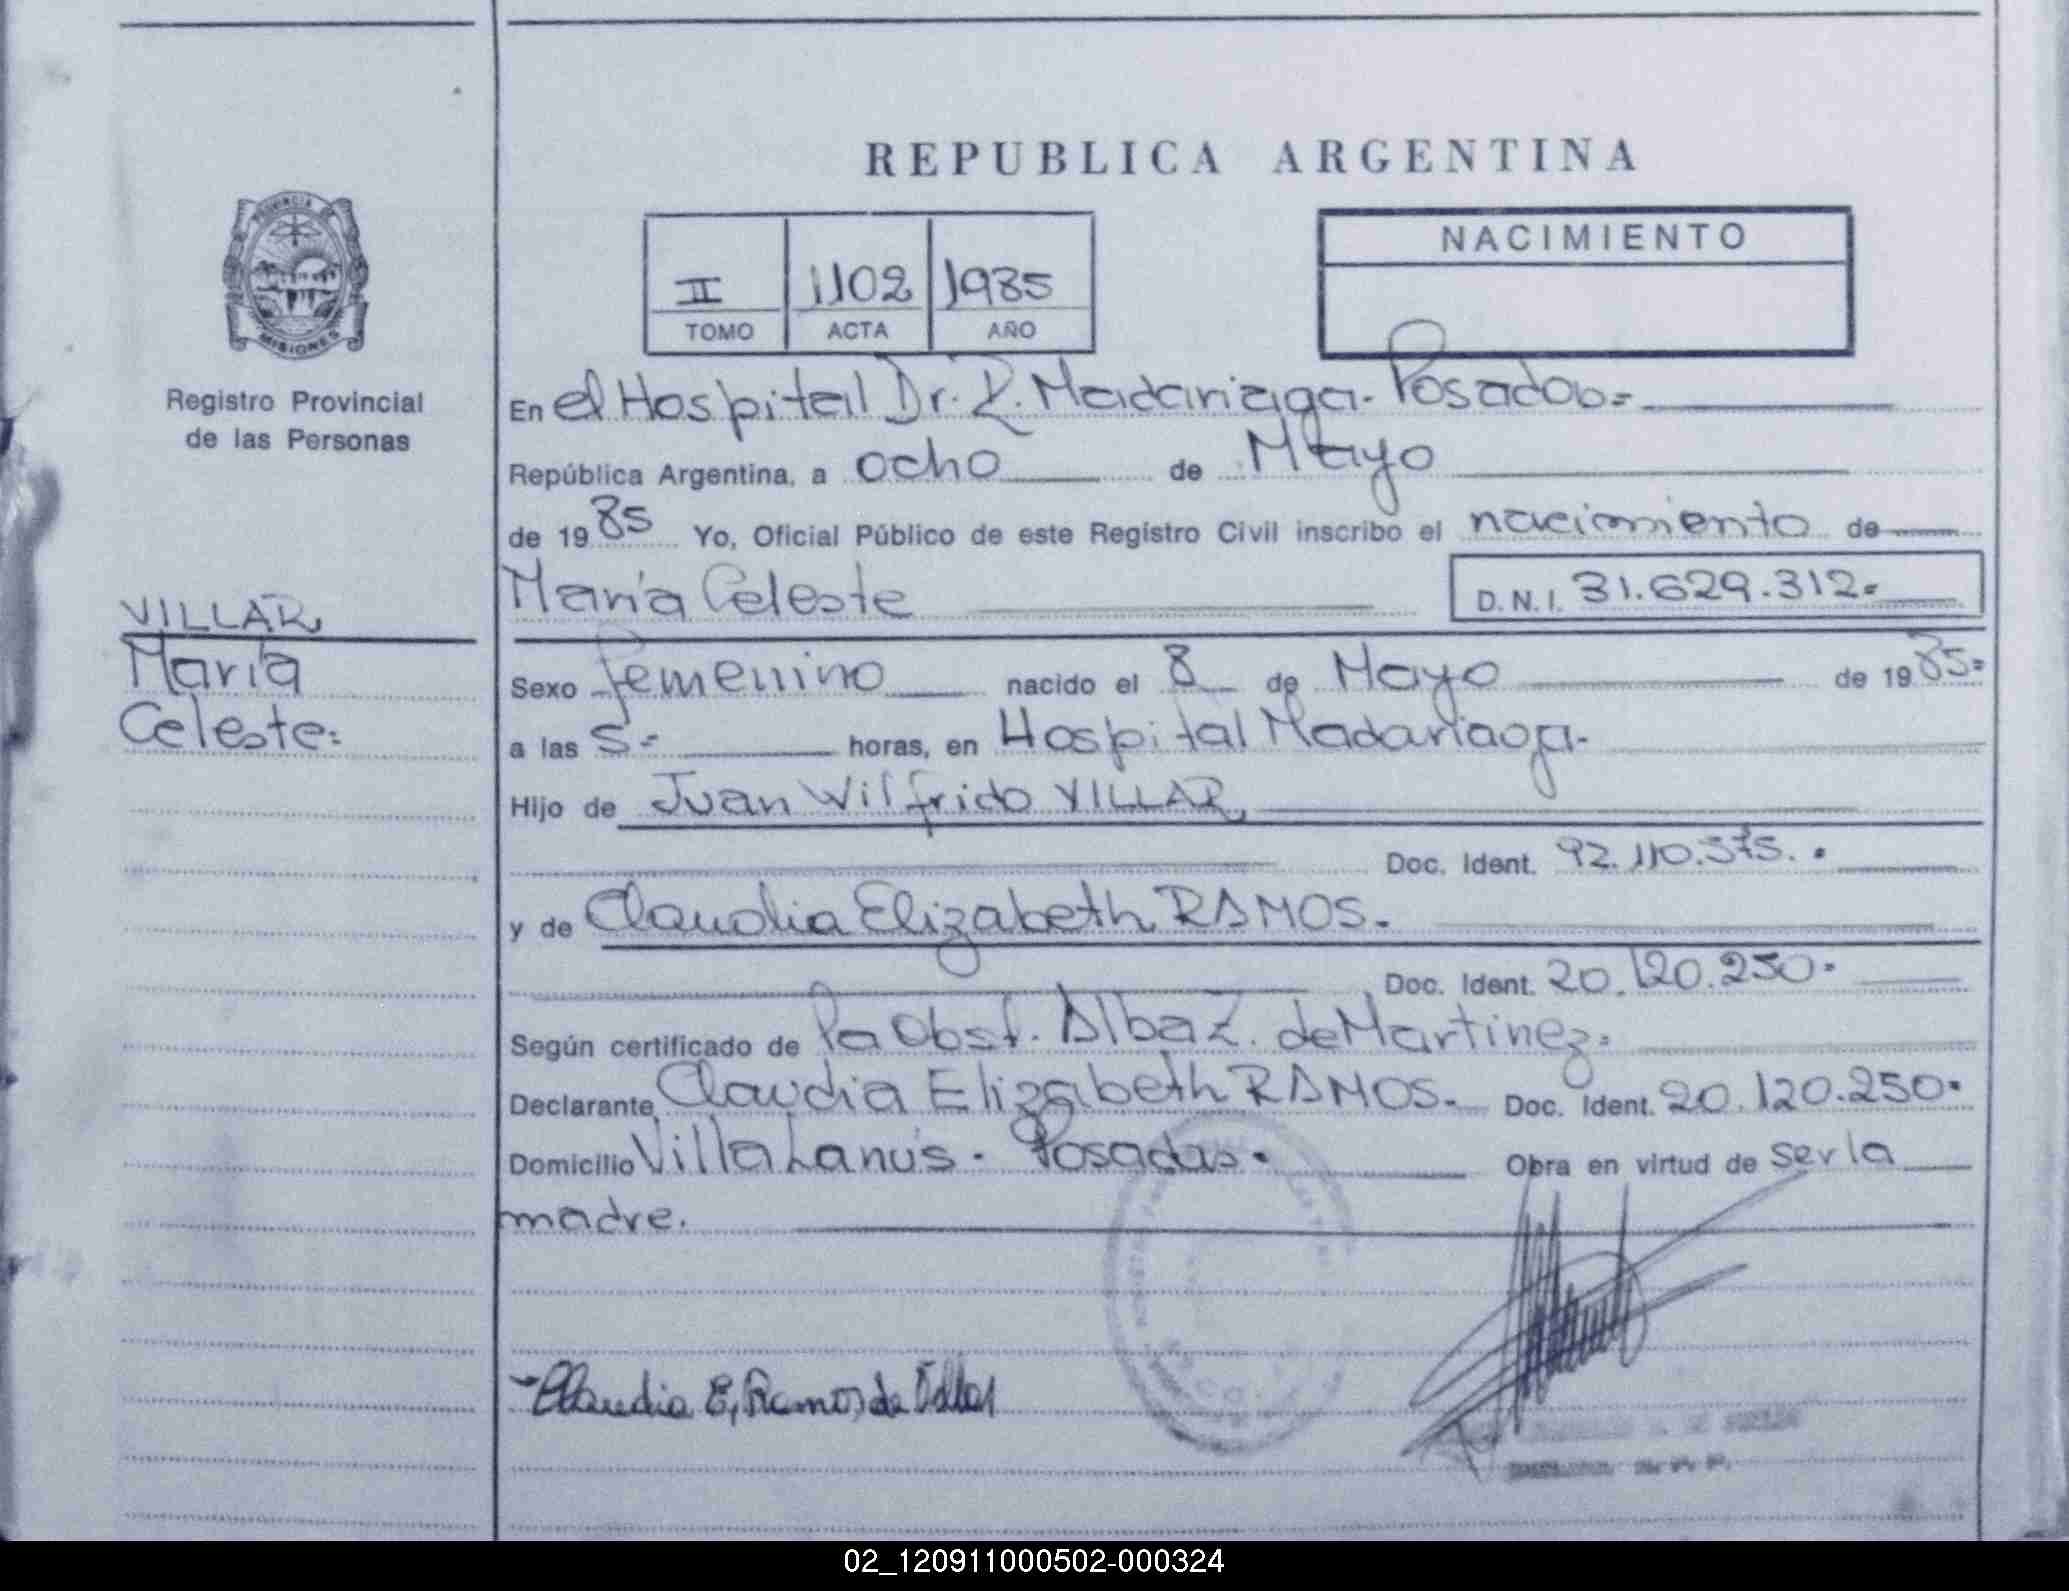 REPUBLICA ARGENTINA
PROVINCIA DE
MISIONES
Registro Provincial
de las Personas
II 1102 1985
TOMO ACTA AÑO
NACIMIENTO
En el Hospital Dr. R. Madariaga - Posadas=
República Argentina, a ocho de Mayo
de 1985 Yo, Oficial Público de este Registro Civil inscribo el nacimiento de
María Celeste D.N.I. 31.629.312=
VILLAR
María
Celeste=
Sexo femenino nacido el 8 de Mayo de 1985=
a las 5= horas, en Hospital Madariaga-
Hijo de Juan Wilfrido VILLAR
Doc. Ident. 92.110.575.
y de Claudia Elizabeth RAMOS.
Doc. Ident. 20.120.250.
Según certificado de la Obst. Alba Z. de Martinez=
Declarante Claudia Elizabeth RAMOS. Doc. Ident. 20.120.250.
Domicilio Villa Lanús. Posadas. Obra en virtud de ser la
madre.
Claudia E, Ramos de Villar
02_120911000502-000324